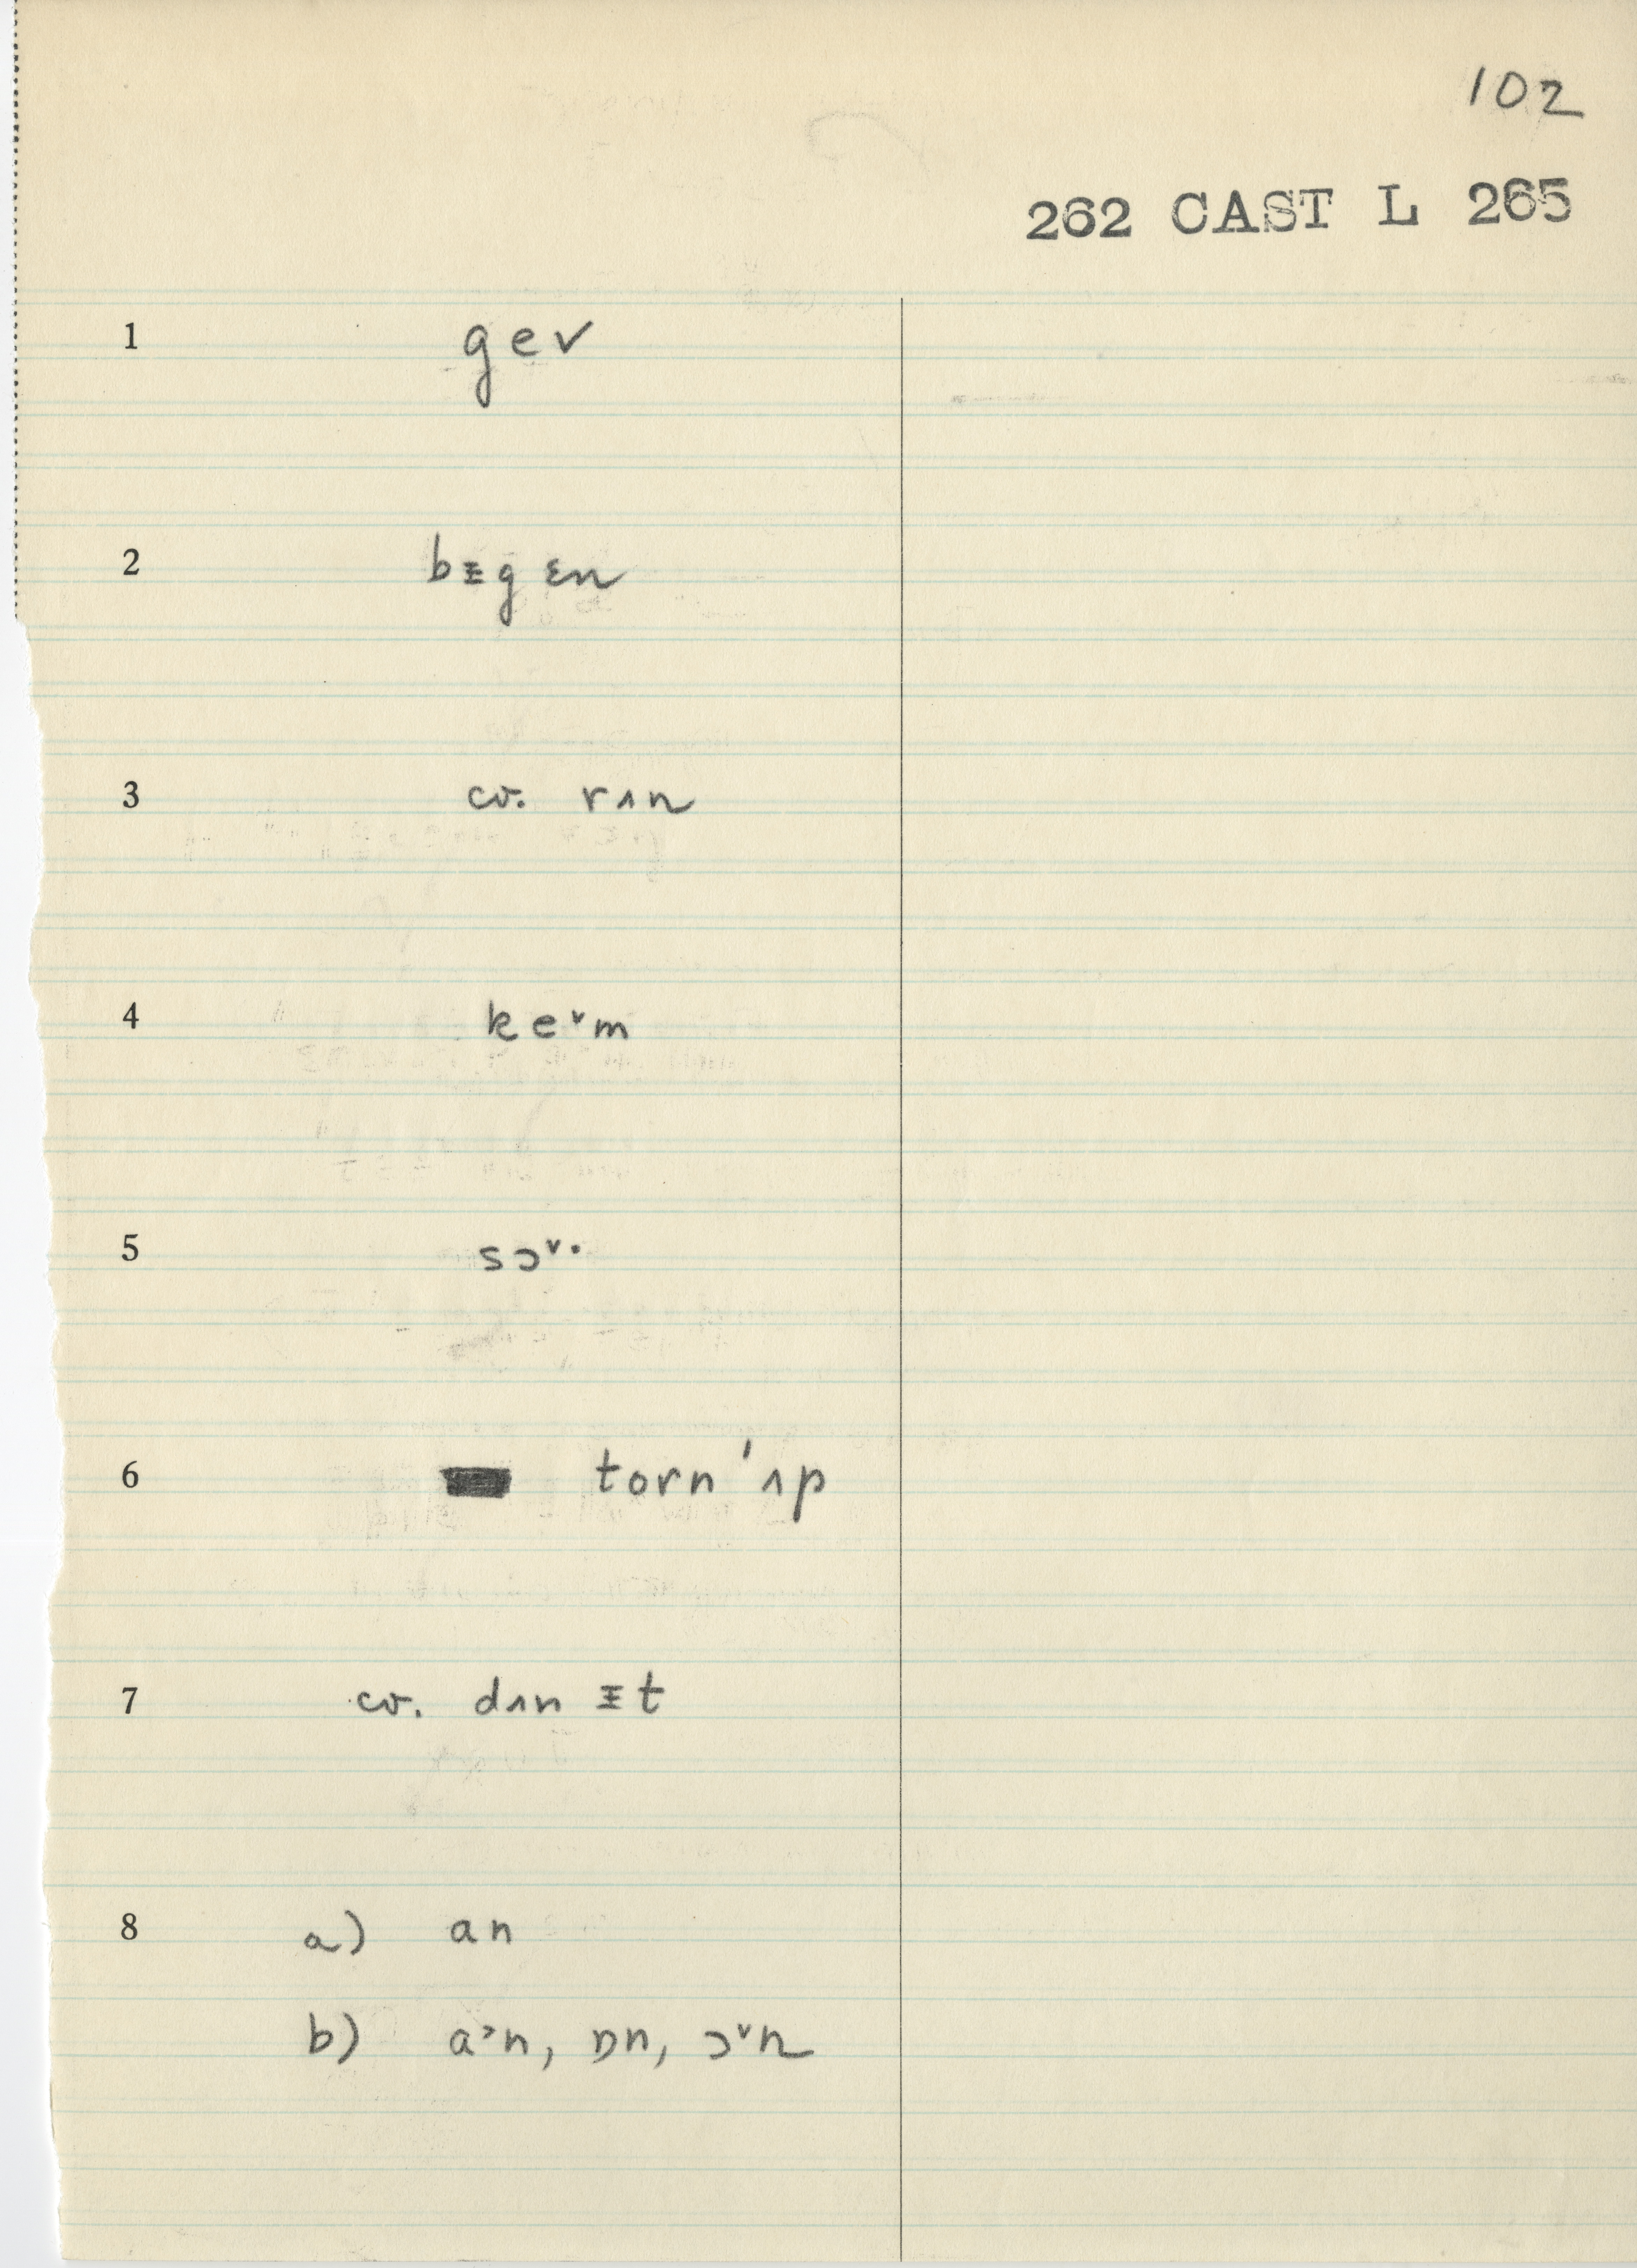 102
262 CAST L 265
1 gev
2 bᵻgɛn
3 cv. rʌn
4 ke˅m
5 sɔ˅·
6 torn'ʌp
7 cv. dʌnᵻt
8 a) an
b) a˃n, ɒn, ɔ˅n